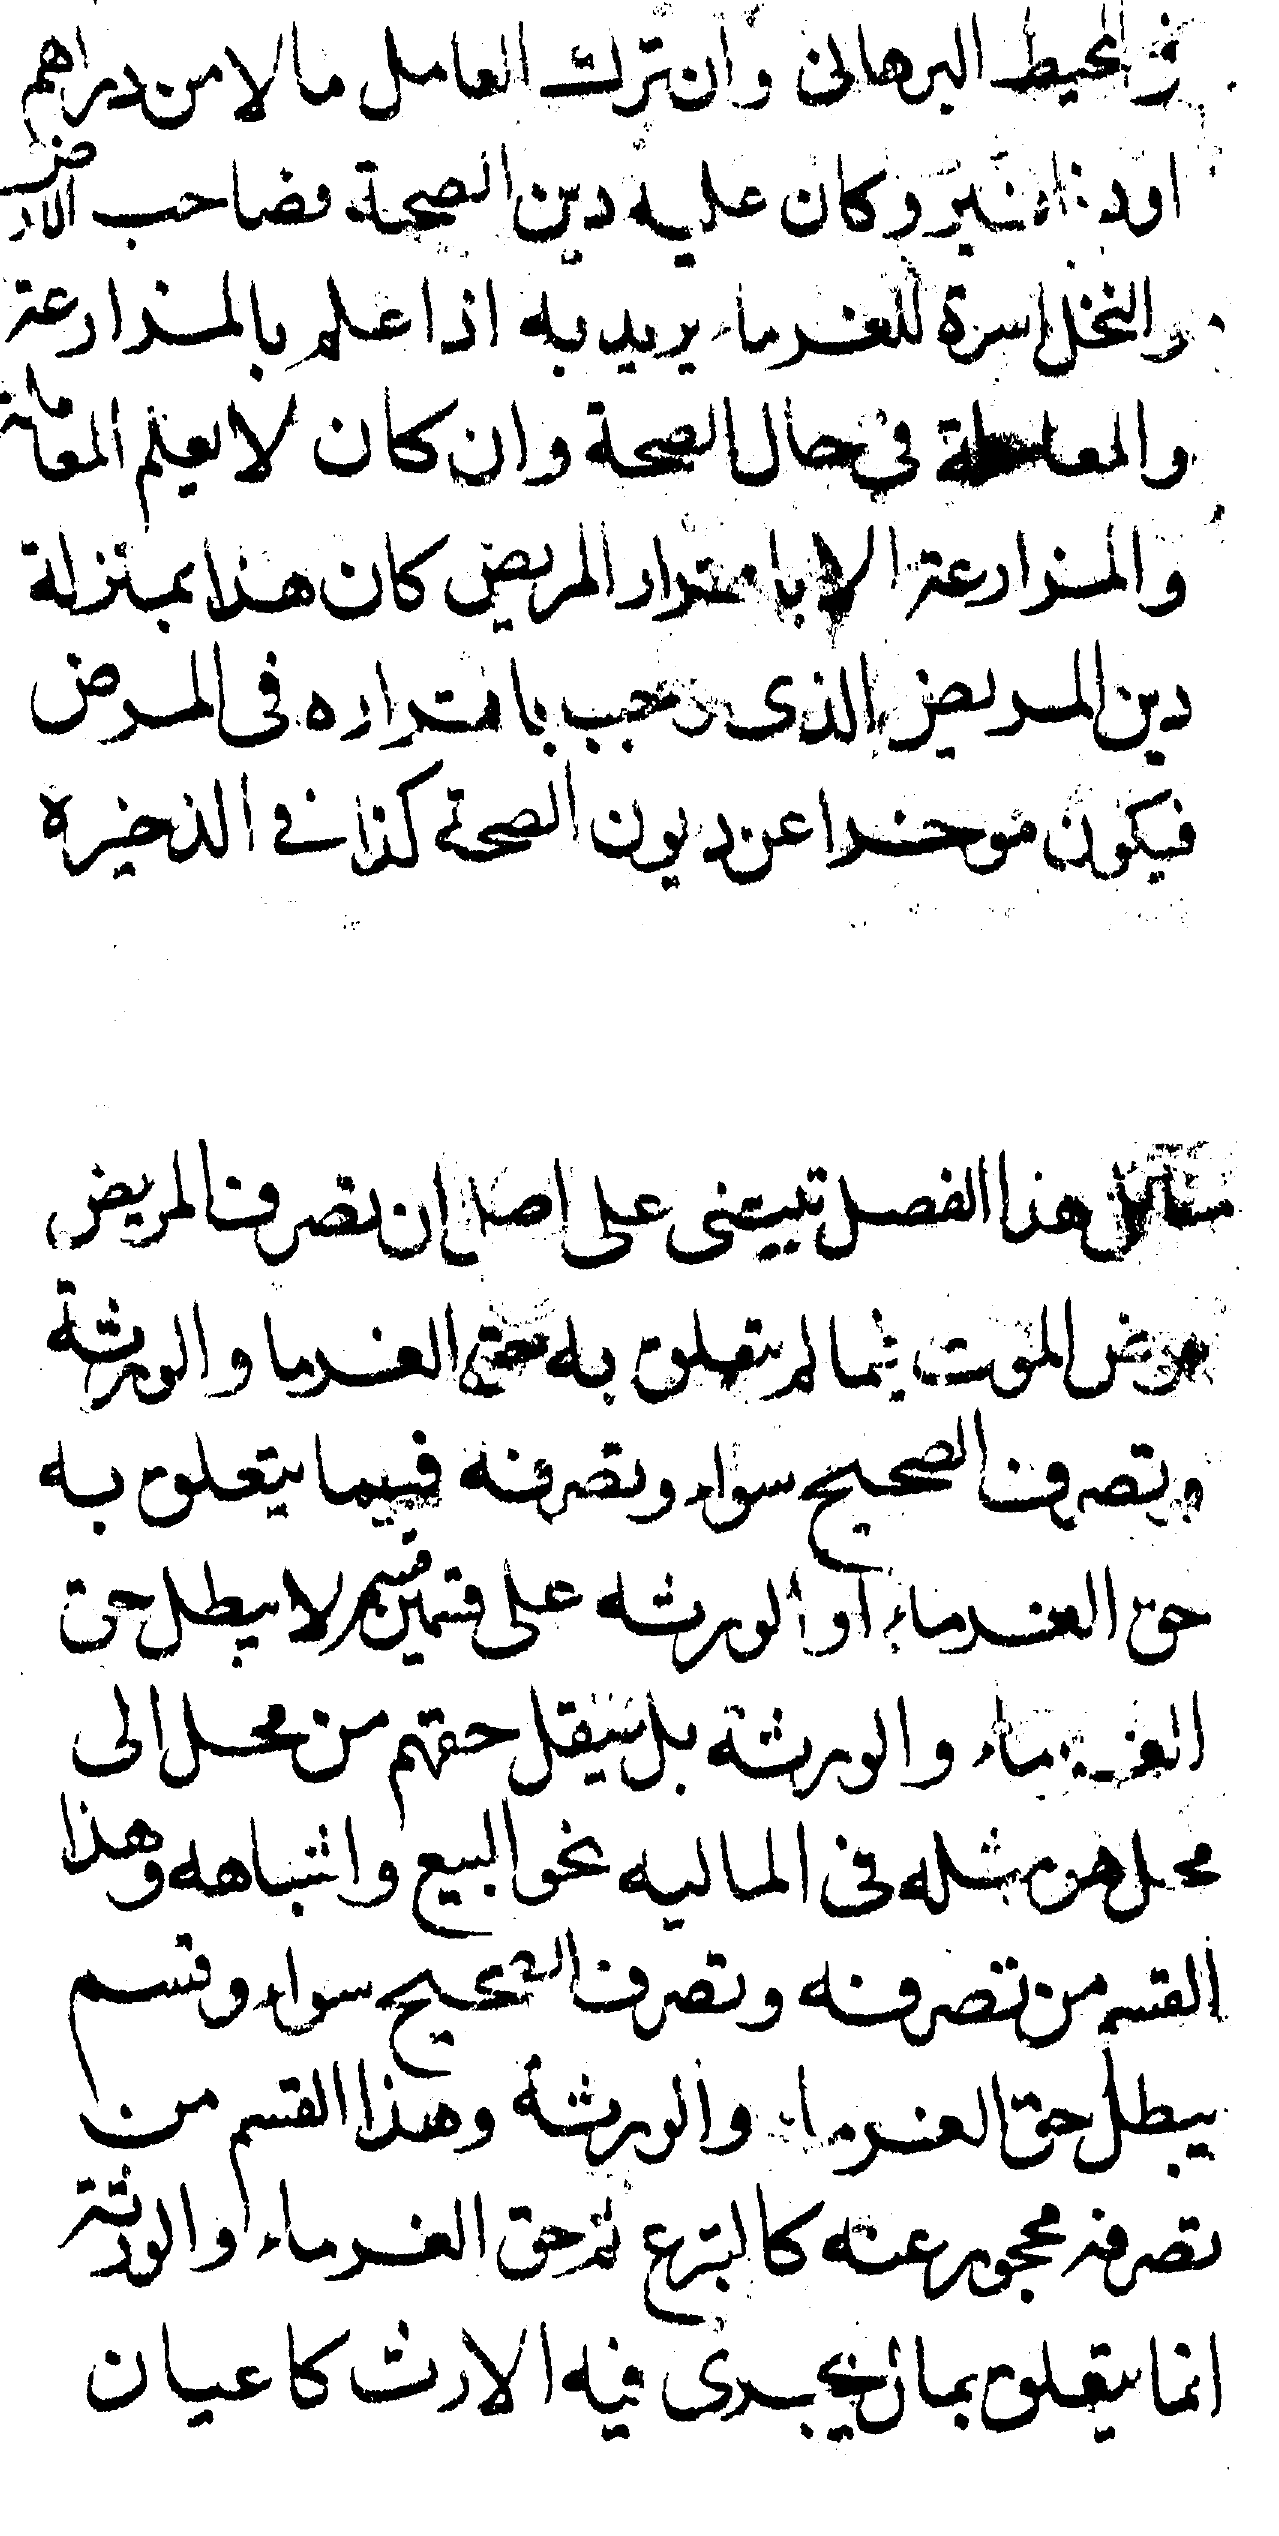 في المحيط البرهانى وان ترك العامل مالا من دراهم
او دنانير وكان عليه دين الصحة فصاحب الارض
والنخل اسوة للغرماء يريد به اذا علم بالمزارعة
والمعاملة في حال الصحة وان كان لا يعلم المعاملة
والمزارعة الا باقرار المريض كان هذا بمنزلة
دين المريض الذى وجب باقراره فى المرض
فيكون موخرا عن ديون الصحة كذا في الذخيرة
مسائل هذا الفصل تبتنى على اصل ان تصرف المريض
مرض الموت فيما لم يتعلق به حق الغرما والورثة
وتصرف الصحيح سواء وتصرفه فيما يتعلق به
حق الغرماء او الورثه على قسمين قسم لا يبطل حق
الغرماء والورثة بل ينقل حقهم من محل الى
محل هو مثله فى الماليه نحو البيع واشباهه وهذا
القسم من تصرفه وتصرف الصحيح سواء وقسم
يبطل حق الغرماء والورثة وهذا القسم من
تصرفه محجور عنه كالتبرع ثم حق الغرماء والورثة
انما يتعلق بمال يجرى فيه الارث كاعيان